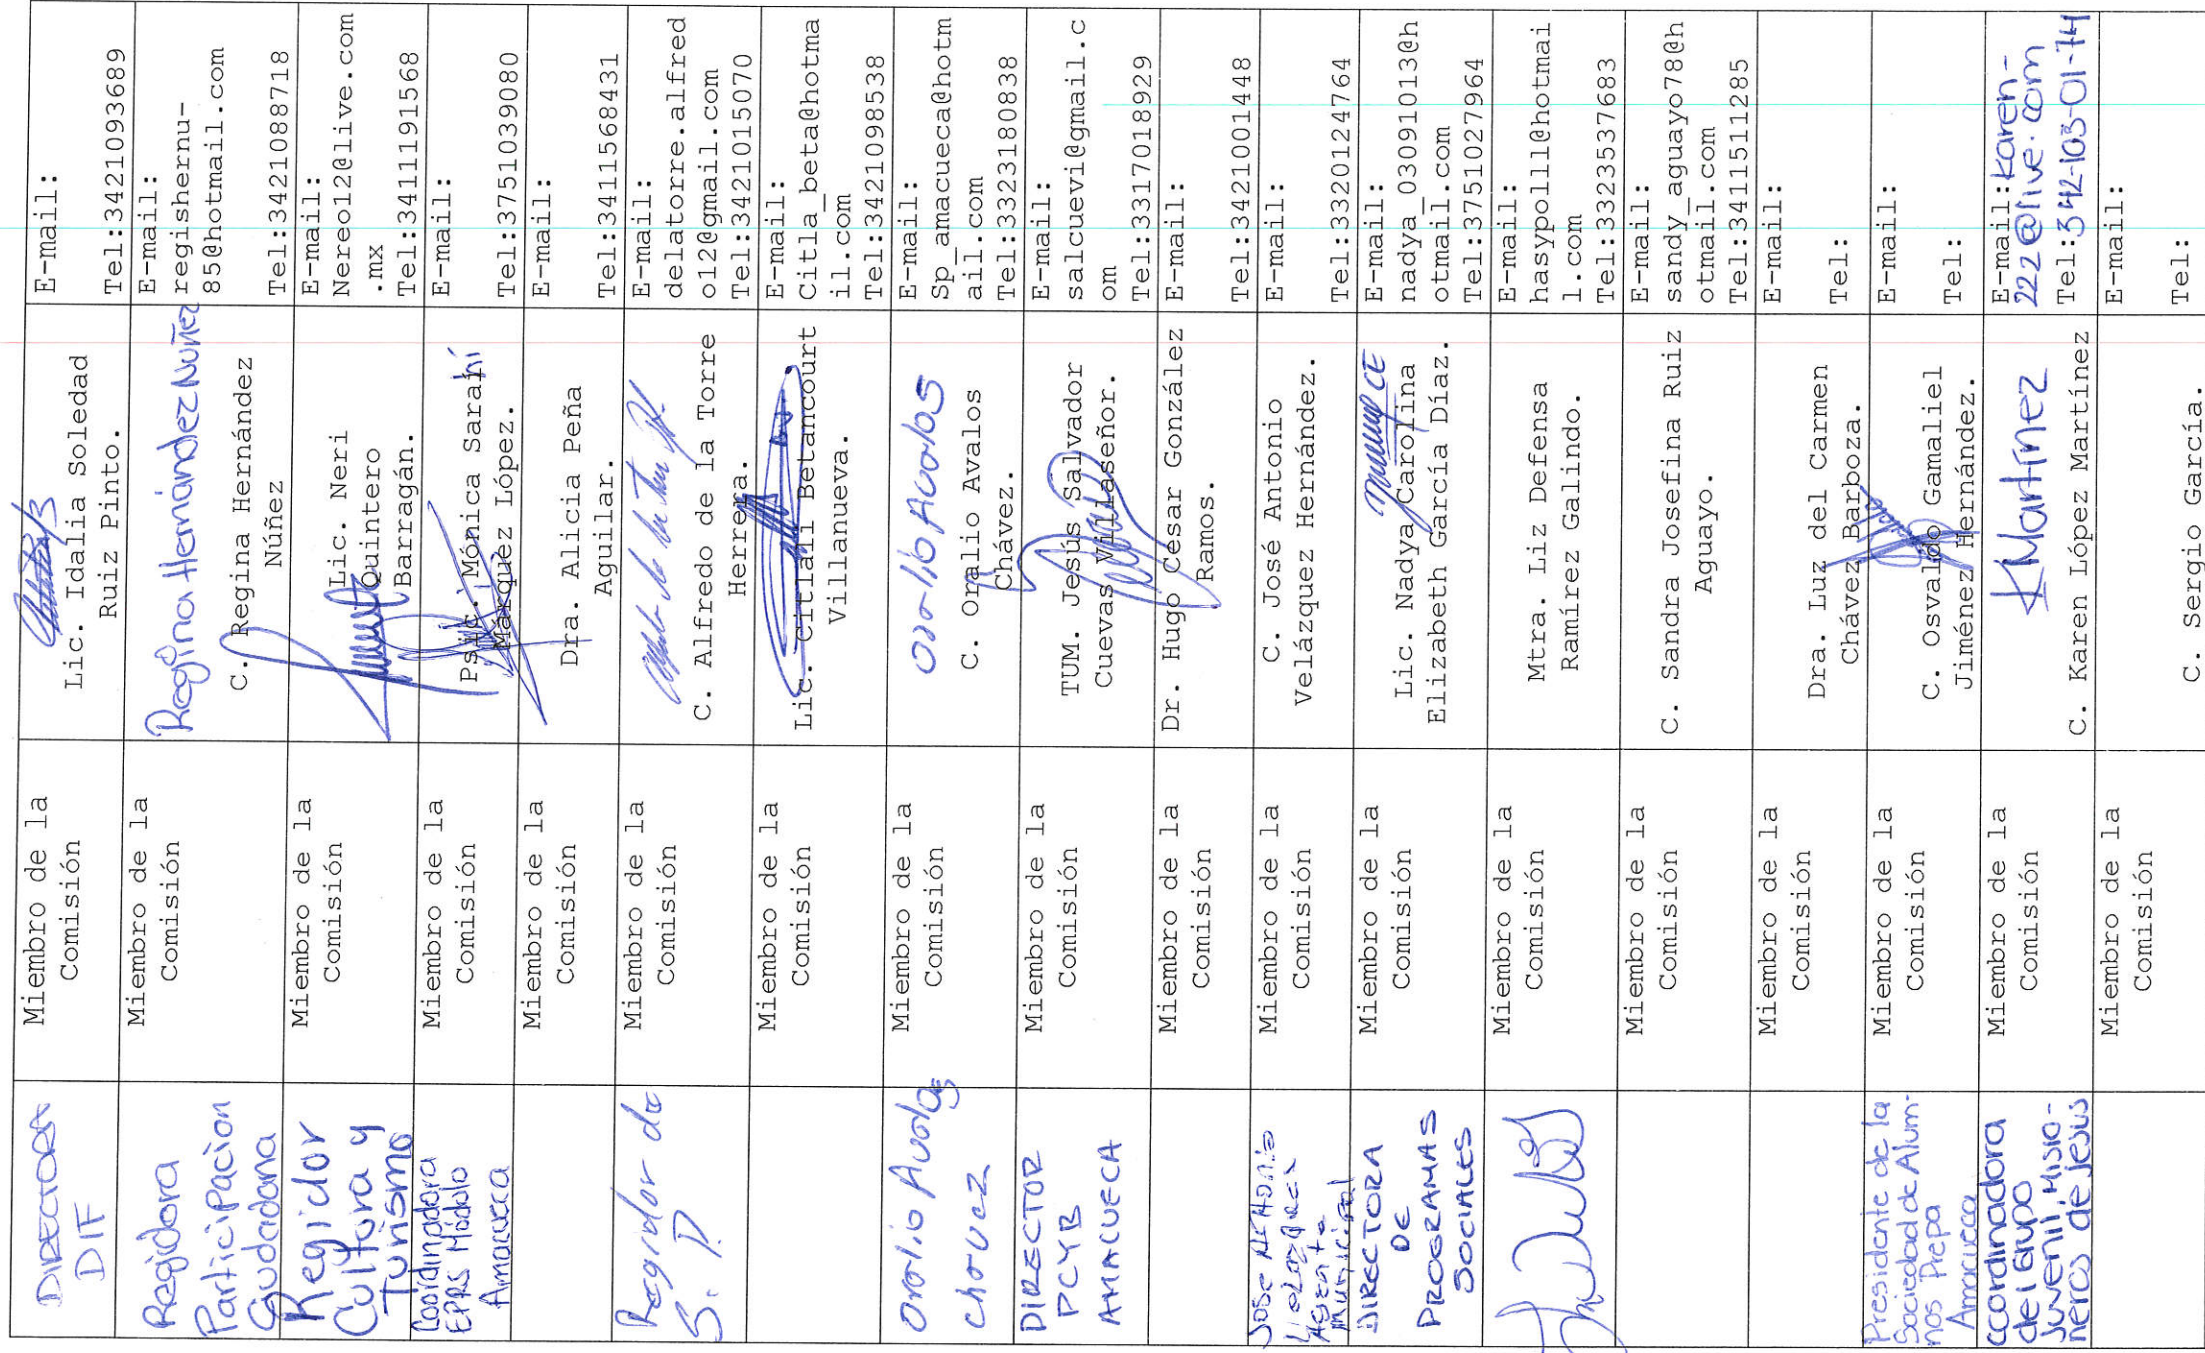 DIRECTORA
DIF
Miembro de la
Comisión
Lic. Idalia Soledad
Ruiz Pinto.
E-mail:
Tel:3421093689
Regidora
Participacion
Ciudadana
Miembro de la
Comisión
Regina Hernández Nuñez
C. Regina Hernández
Núñez
E-mail:
regishernu-
85@hotmail.com
Tel:3421088718
Regidor
Cultura y
Turismo
Miembro de la
Comisión
Lic. Neri
Quintero
Barragán.
E-mail:
Nereo12@live.com
.mx
Tel:3411191568
Coordinadora
EPRS Módulo
Amacueca
Miembro de la
Comisión
Psic. Mónica Sarahí
Márquez López.
E-mail:
Tel:3751039080
Miembro de la
Comisión
Dra. Alicia Peña
Aguilar.
E-mail:
Tel:3411568431
Regidor de
S. P.
Miembro de la
Comisión
C. Alfredo de la Torre
Herrera.
E-mail:
delatorre.alfred
o12@gmail.com
Tel:3421015070
Miembro de la
Comisión
Lic. Citlali Betancourt
Villanueva.
E-mail:
Citla_beta@hotma
il.com
Tel:3421098538
Oralio Avalos
Chavez
Miembro de la
Comisión
Oralio Avalos
C. Oralio Avalos
Chávez.
E-mail:
Sp_amacueca@hotm
ail.com
Tel:3323180838
DIRECTOR
PCYB
AMACUECA
Miembro de la
Comisión
TUM. Jesús Salvador
Cuevas Villaseñor.
E-mail:
salcuevi@gmail.c
om
Tel:3317018929
Miembro de la
Comisión
Dr. Hugo Cesar González
Ramos.
E-mail:
Tel:3421001448
Jose Antonio
Agente
Municipal
Miembro de la
Comisión
C. José Antonio
Velázquez Hernández.
E-mail:
Tel:3320124764
DIRECTORA
DE
PROGRAMAS
SOCIALES
Miembro de la
Comisión
Lic. Nadya Carolina
Elizabeth García Díaz.
E-mail:
nadya_03091013@h
otmail.com
Tel:3751027964
Miembro de la
Comisión
Mtra. Liz Defensa
Ramírez Galindo.
E-mail:
hasypolll@hotmai
l.com
Tel:3323537683
Miembro de la
Comisión
C. Sandra Josefina Ruiz
Aguayo.
E-mail:
sandy_aguayo78@h
otmail.com
Tel:3411511285
Miembro de la
Comisión
Dra. Luz del Carmen
Chávez Barboza.
E-mail:
Tel:
Presidente de la
Sociedad de Alum-
nos Prepa
Amacueca
Miembro de la
Comisión
C. Osvaldo Gamaliel
Jiménez Hernández.
E-mail:
Tel:
coordinadora
del Grupo
Juvenil, Misio-
neros de Jesus
Miembro de la
Comisión
K Martínez
C. Karen López Martínez
E-mail: karen-
222@live.com
Tel: 342-103-01-74
Miembro de la
Comisión
C. Sergio García.
E-mail:
Tel: